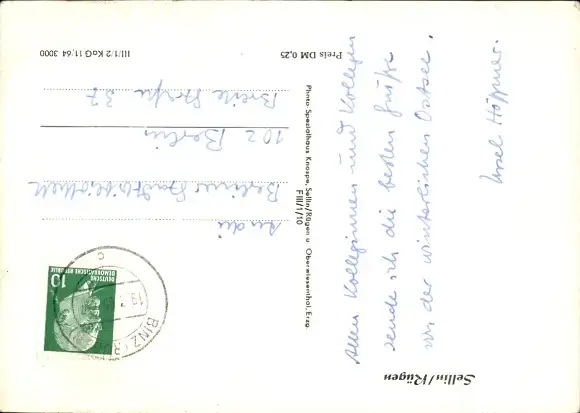 Sellin/Rügen
Allen Kolleginnen und Kollegen
sende ich die besten Grüße
von der winterlichen Ostsee.
Ursel Höppner.
Photo-Spezialhaus Knospe, Sellin/Rügen u. Oberwiesenthal, Erzg.
F III/1/10
DEUTSCHE
DEMOKRATISCHE REPUBLIK
10
BINZ (RÜ
c
An die
Berliner Stadtbibliothek
102 Berlin
Breite Straße 37
III/1/2 KaG 11/64 3000
Preis DM 0,25